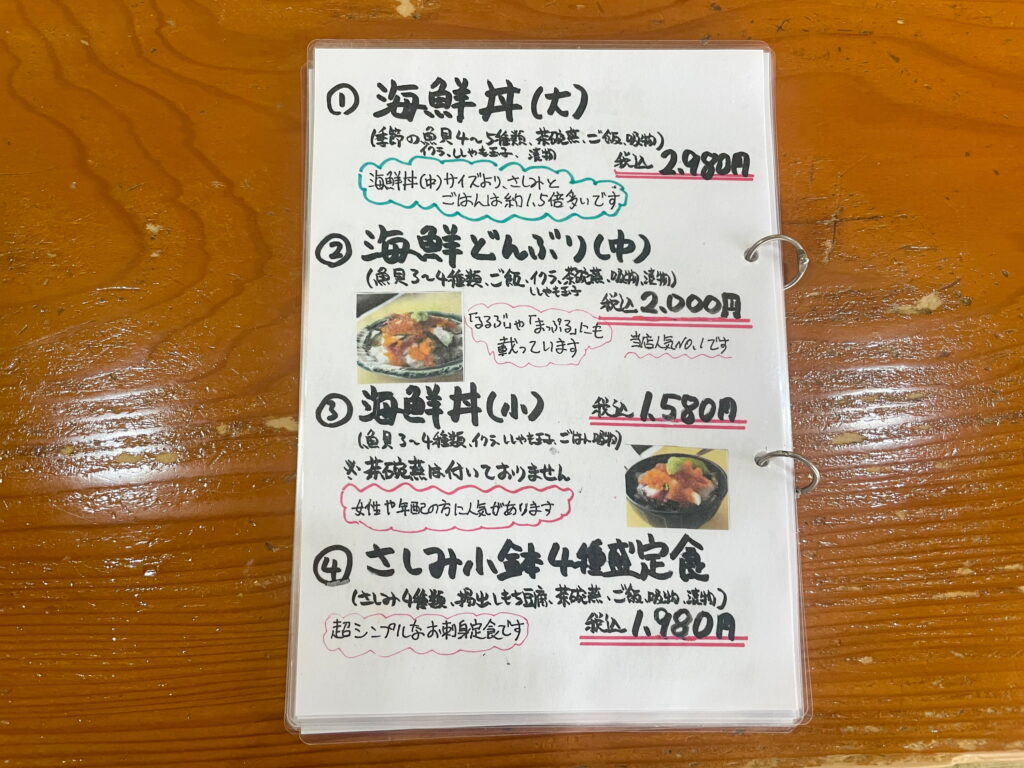 ① 海鮮丼(大)
(季節の魚貝4～5種類、茶碗蒸、ご飯、吸物)
イクラ、ししゃも玉子、漬物
税込 2,980円
海鮮丼(中)サイズより、さしみと
ごはんは約1.5倍多いです
② 海鮮どんぶり(中)
(魚貝3～4種類、ご飯、イクラ、茶碗蒸、吸物、漬物)
ししゃも玉子
税込 2,000円
「るるぶ」や「まっぷる」にも
載っています
当店人気NO.1です
③ 海鮮丼(小)
税込 1,580円
(魚貝3～4種類、イクラ、ししゃも玉子、ごはん、吸物)
※茶碗蒸は付いておりません
女性や年配の方に人気があります
④ さしみ小鉢4種盛定食
(さしみ4種類、揚出しもち豆腐、茶碗蒸、ご飯、吸物、漬物)
税込 1,980円
超シンプルなお刺身定食です